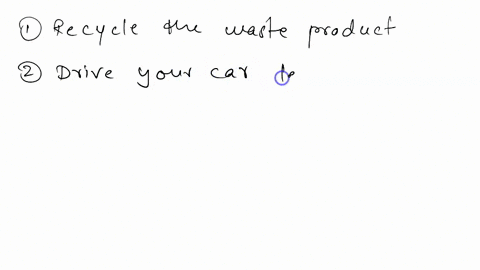 ① Recycle the waste product
② Drive your car